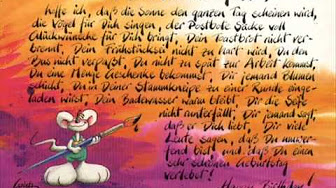 hoffe ich, daß die Sonne den ganzen Tag scheinen wird,
die Vögel für Dich singen, der Postbote Säcke voll
Glückwünsche für Dich bringt, Dein Toastbrot nicht ver-
brennt, Dein Frühstücksei nicht zu hart wird, Du den
Bus nicht verpaßt, Du nicht zu spät zur Arbeit kommst,
Du eine Menge Geschenke bekommst, Dir jemand Blumen
schickt, Du in Deiner Stammkneipe zu einer Runde einge-
laden wirst, Dein Badewasser warm bleibt, Dir die Seife
nicht runterfällt, Dir jemand sagt,
daß er Dich liebt, Dir viele
Leute sagen, daß Du umwer-
fend bist und daß Du einen
sehr schönen Geburtstag
verlebst!
Happy Birthday!